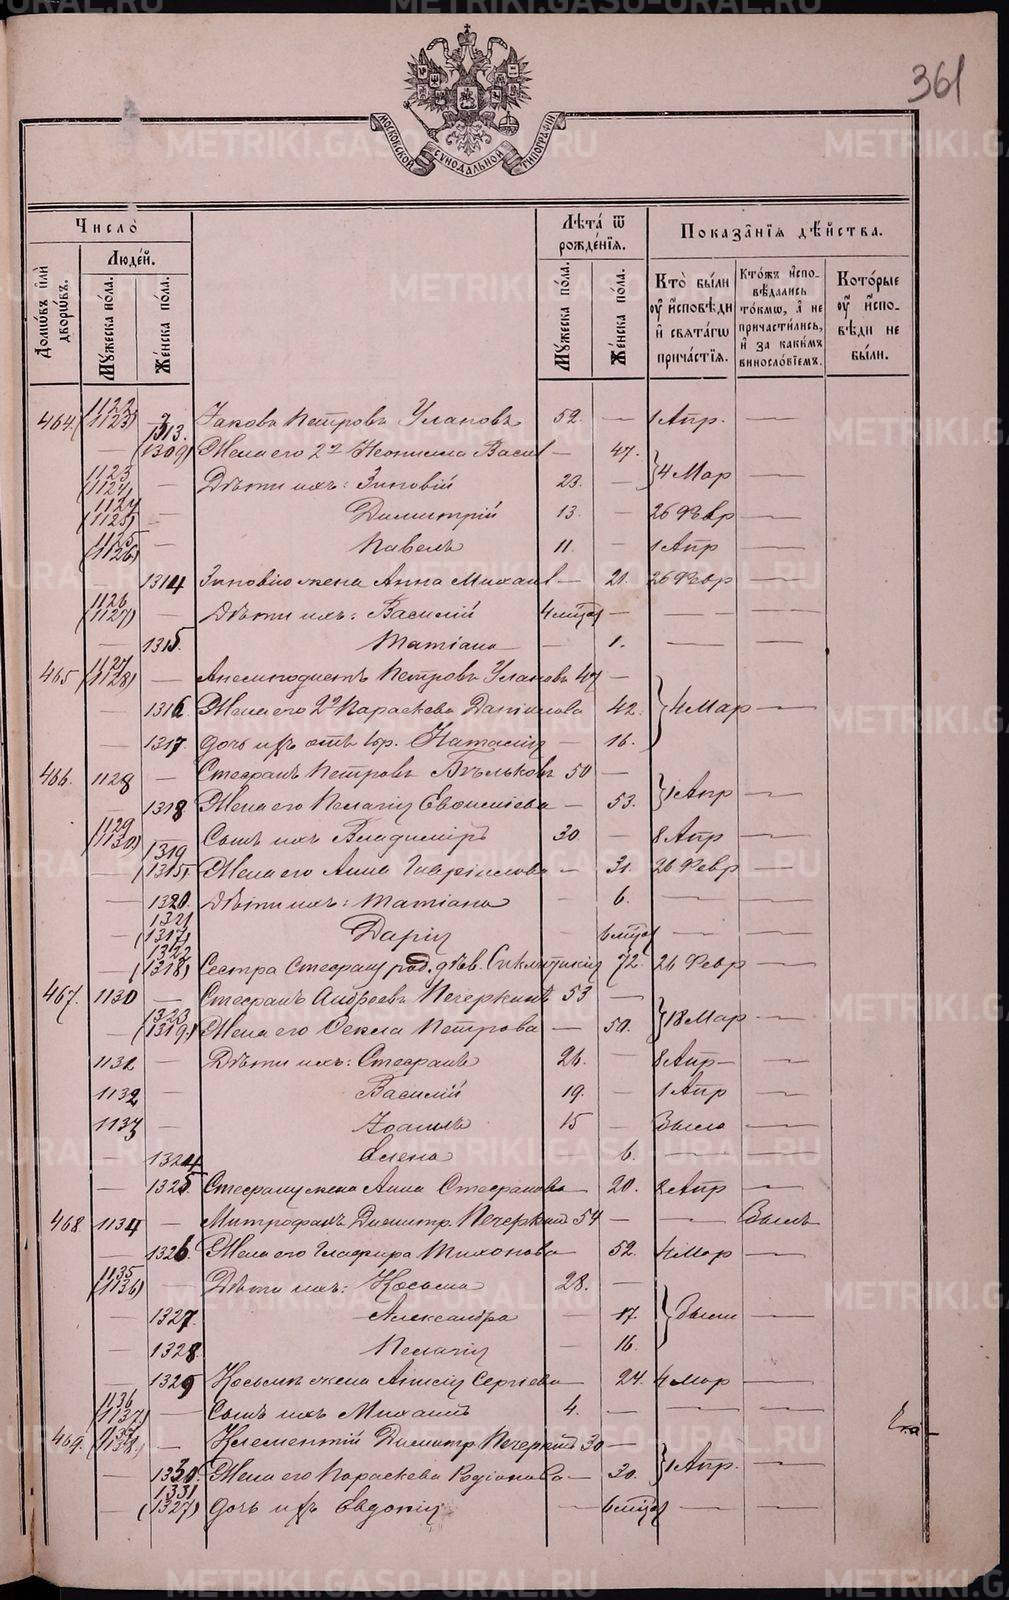 361
МОСКОВСКОЙ СѴНОДАЛЬНОЙ ТИПОГРАФІИ
Число̀
Лѣта̀ ѿ рожде́нїѧ.
Показа̑нїѧ дѣ́йства.
Домѡ́въ и҆лѝ дворѡ́въ.
Люде́й.
Мꙋ́жеска по́ла.
Же́нска по́ла.
Мꙋ́жеска по́ла.
Же́нска по́ла.
Кто̀ бы́ли ᲂу҆ и҆сповѣ́ди и҆ свѧта́гѡ прича́стїѧ.
Кто́жъ и҆сповѣ́дались то́кмѡ, а҆ не причасти́лись, и҆ за каки́мъ винословїемъ.
Кото́рые ᲂу҆ и҆сповѣ́ди не бы́ли.
464. 1122 (1123) — Іаковъ Петровъ Улановъ 52. — 1 Апр. —
— 1313. (1309) Жена его 2я Неонила Васил — 47. } 4 Мар —
1123 (1124) — Дѣти ихъ: Зиновій 23. —
1124 (1125) — Димитрій 13. — 26 Февр —
1125 (1126) — Павелъ 11. — 1 Апр —
— 1314 Зиновію жена Анна Михаил — 21. 26 Февр —
1126 (1127) — Дѣти ихъ: Василій 4 мѣся — — —
— 1315. Татіана — 1. — —
465 1127 (1128) — Анемподистъ Петровъ Улановъ 47 —
— 1316 Жена его 2я Параскева Даніилова 42. } 4 Мар —
— 1317. дочь ихъ отъ 1 бр. Наталія — 16.
466. 1128 — Стефанъ Петровъ Бѣльковъ 50 —
— 1318 Жена его Пелагія Евфиміева — 53. } 1 Апр —
1129 (1130) — Сынъ ихъ Владиміръ 30. — 8 Апр —
— 1319 (1315) Жена его Анна Гавріилова — 31. 26 Февр —
— 1320. Дѣти ихъ: Татіана — 6. — —
— 1321 (1317) Дарія 6 мѣся — —
— 1322 (1318) Сестра Стефану род. дѣв. Синклитикія 72. 26 Февр —
467. 1130 — Стефанъ Андреевъ Печеркинъ 53 —
— 1323 (1319) Жена его Ѳекла Петрова — 50. } 18 Мар —
1131 — Дѣти ихъ: Стефанъ 26. — 8 Апр —
1132 — Василій 19. — 1 Апр —
1133 — Іоаннъ 15 — Былъ —
— 1324 Елена — 6. — —
— 1325. Стефану жена Анна Стефанова 20. 8 Апр —
468. 1134 — Митрофанъ Димитр. Печеркинъ 54 — — Былъ
— 1326. Жена его Глафира Тихонова — 52. 4 Мар —
1135 (1136) — Дѣти ихъ: Косьма 28. —
— 1327. Александра — 17. } были —
— 1328. Пелагія 16.
— 1329 Косьмѣ жена Анисія Сергіева — 24. 4 Мар —
1136 (1137) — Сынъ ихъ Михаилъ 4. — — —
469. (1138) — Климентій Димитр Печеркинъ 30 —
— 1330. Жена его Параскева Родіонова — 30. } 1 Апр. —
— 1331. (1327) Дочь ихъ Евдокія — 6 мѣся — —
METRIKI.GASO-URAL.RU